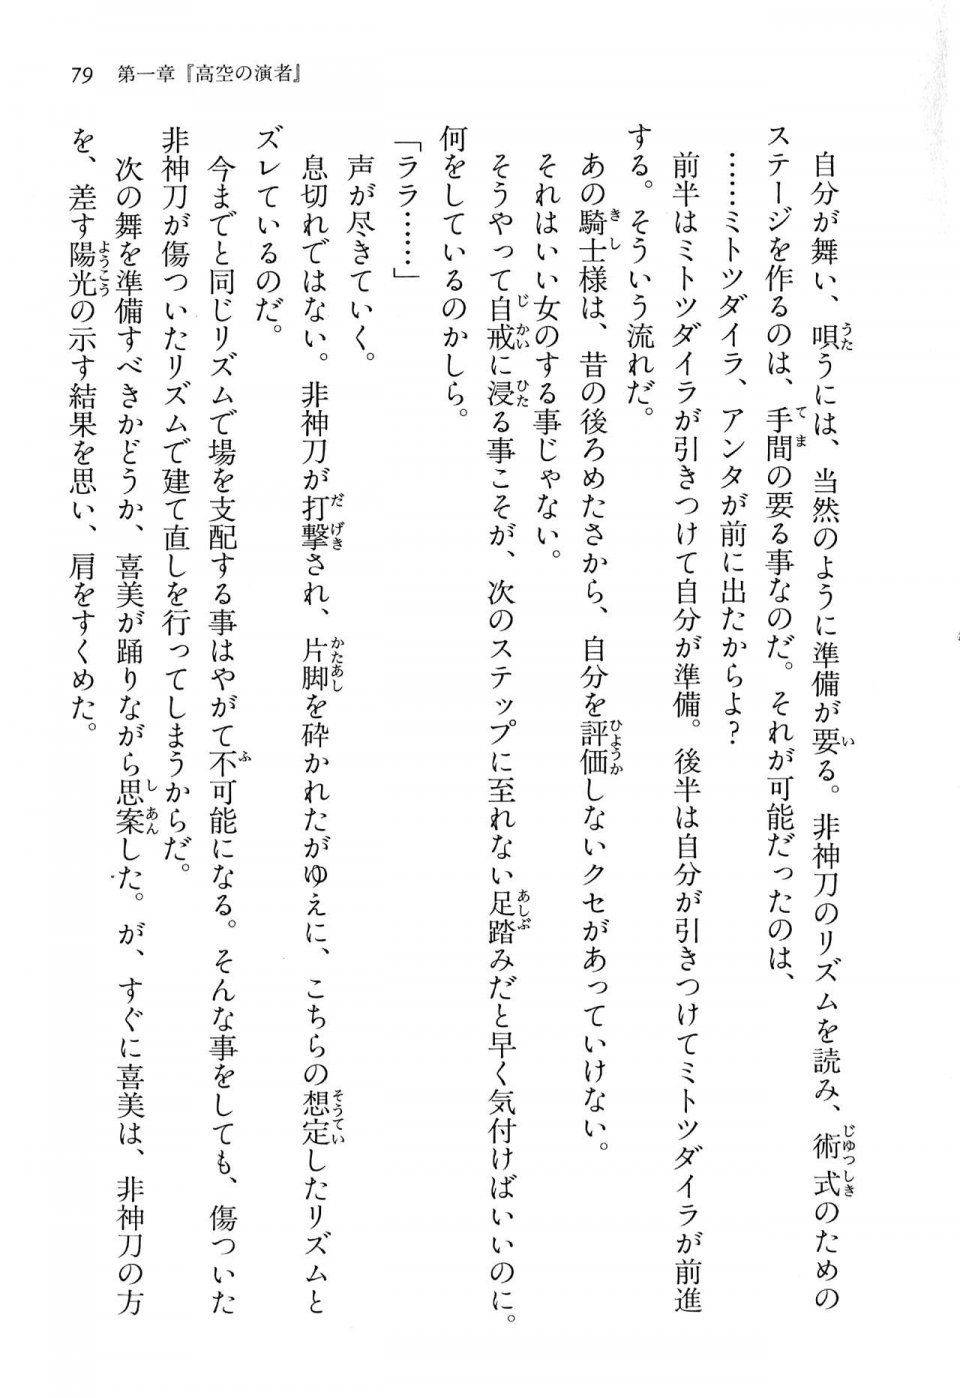 79　第一章『高空の演者』
　自分が舞い、唄うには、当然のように準備が要る。非神刀のリズムを読み、術式のための
ステージを作るのは、手間の要る事なのだ。それが可能だったのは、
　……ミトツダイラ、アンタが前に出たからよ？
　前半はミトツダイラが引きつけて自分が準備。後半は自分が引きつけてミトツダイラが前進
する。そういう流れだ。
　あの騎士様は、昔の後ろめたさから、自分を評価しないクセがあっていけない。
　それはいい女のする事じゃない。
　そうやって自戒に浸る事こそが、次のステップに至れない足踏みだと早く気付けばいいのに。
何をしているのかしら。
「ララ……」
　声が尽きていく。
　息切れではない。非神刀が打撃され、片脚を砕かれたがゆえに、こちらの想定したリズムと
ズレているのだ。
　今までと同じリズムで場を支配する事はやがて不可能になる。そんな事をしても、傷ついた
非神刀が傷ついたリズムで建て直しを行ってしまうからだ。
　次の舞を準備すべきかどうか、喜美が踊りながら思案した。が、すぐに喜美は、非神刀の方
を、差す陽光の示す結果を思い、肩をすくめた。